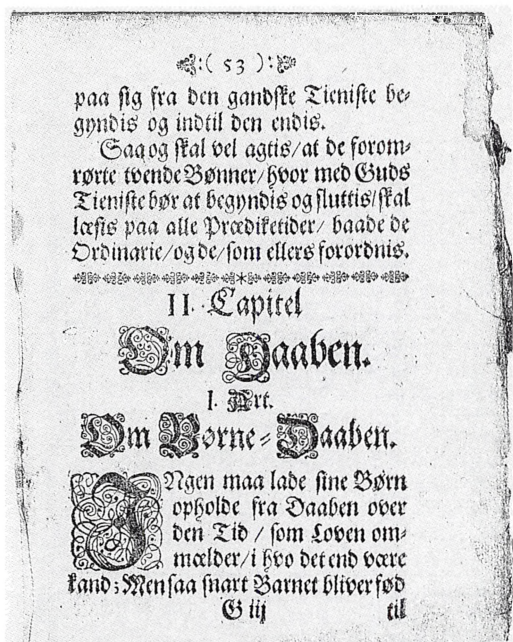 :( 53 ):
paa sig fra den gandske Tieniste be-
gyndis og indtil den endis.
Saa og skal vel agtis/at de forom-
rørte tvende Bønner/hvor med Guds
Tieniste bør at begyndis og sluttis/skal
læsis paa alle Prædiketider/ baade de
Ordinarie/og de/som ellers forordnis.
II. Capitel
Om Daaben.
I. Art.
Om Børne-Daaben.
INgen maa lade sine Børn
opholde fra Daaben over
den Tid / som Loven om-
mælder/i hvo det end være
kand; Men saa snart Barnet bliver fød
G iij til